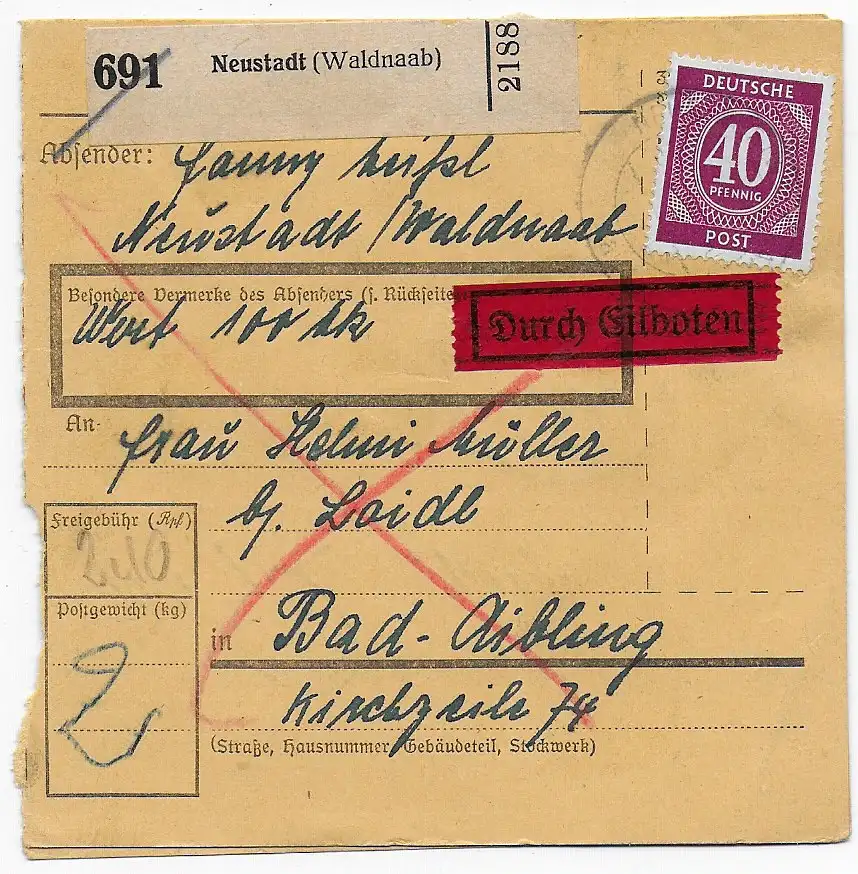 691 Neustadt (Waldnaab) 2188
DEUTSCHE
40
PFENNIG
POST
Absender: Fanny
Neustadt / Waldnaab
Besondere Vermerke des Absenders (s. Rückseite
Wert 100 Mk
Durch Eilboten
An
Frau Helmi Müller
b. Loidl
Freigebühr (Rpf)
2,10
Postgewicht (kg)
2
in Bad-Aibling
Kirchzeile 74
(Straße, Hausnummer, Gebäudeteil, Stockwerk)